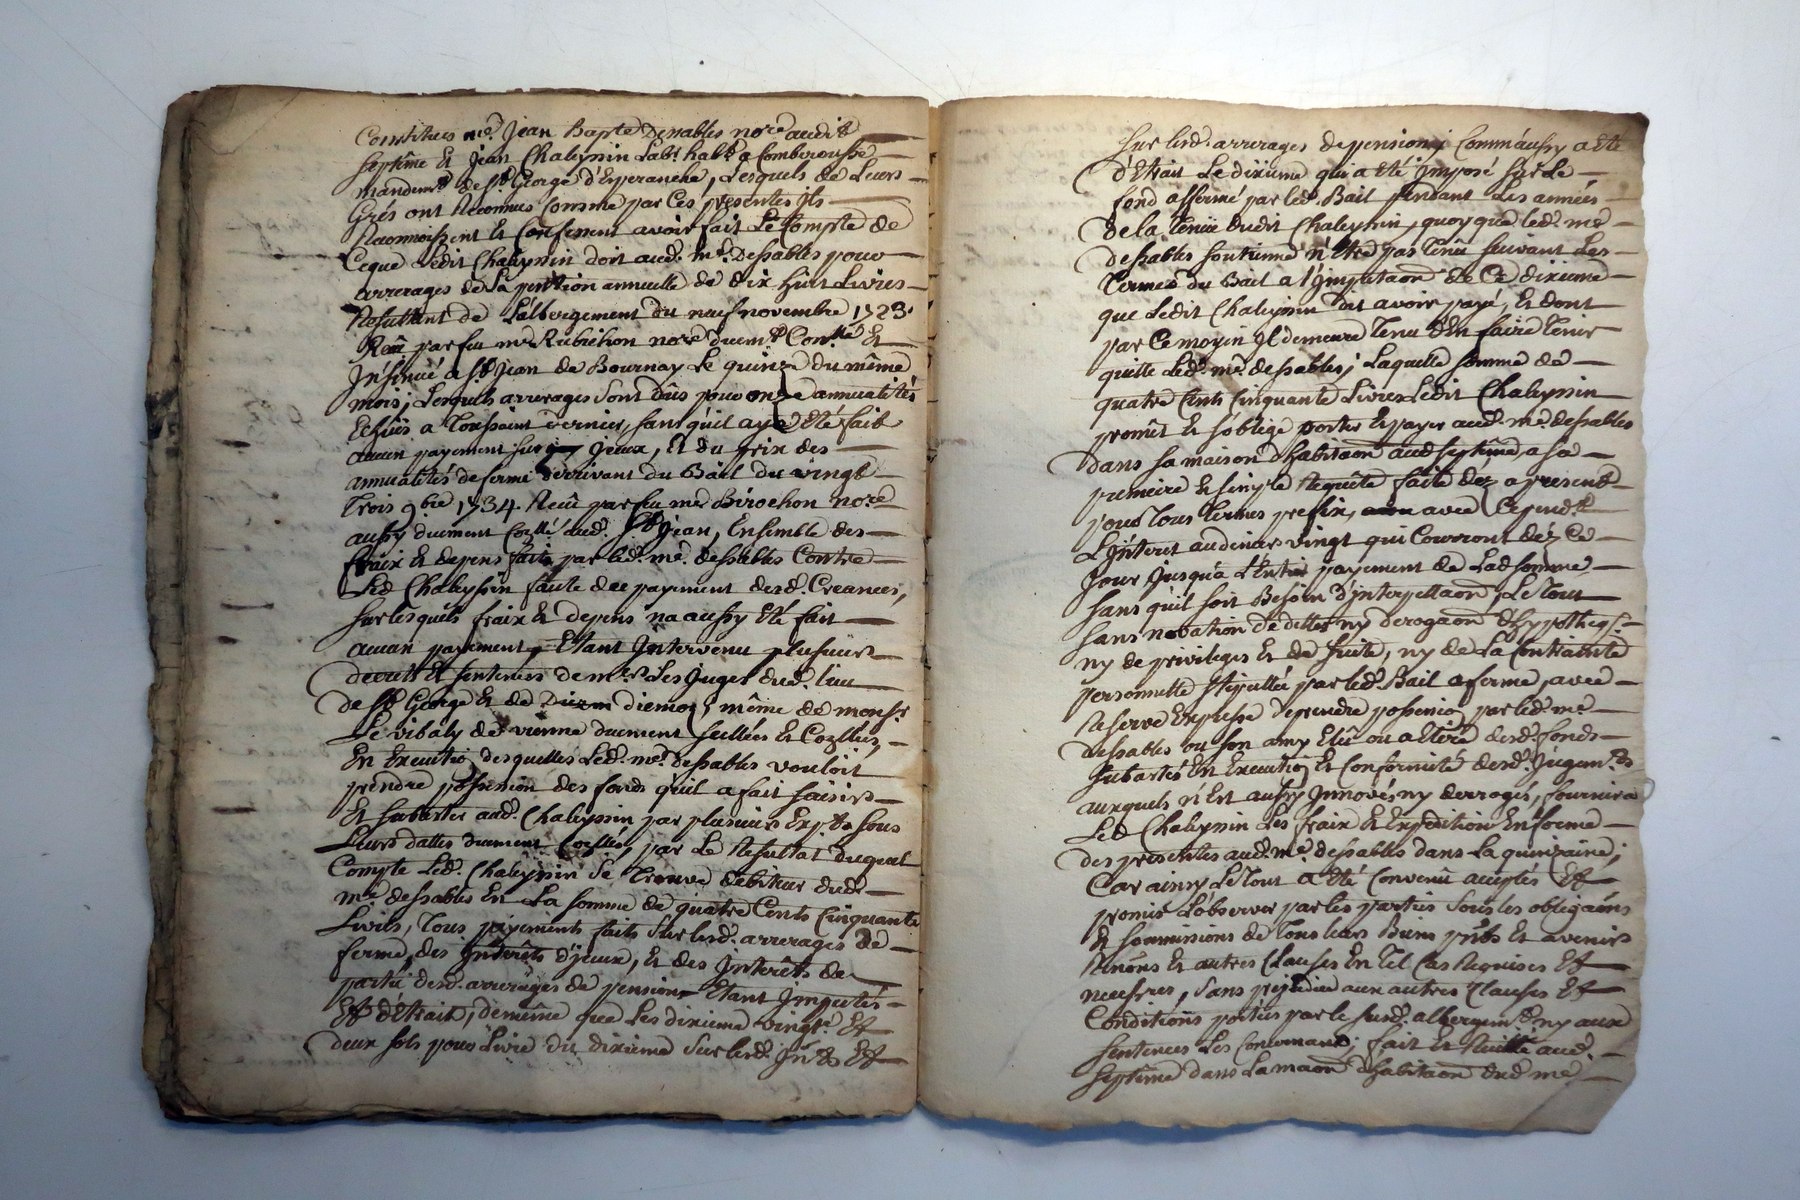 Constitues me. Jean Bapte Dessables nore audit
septême Et Jean Chaleyssin Labr. habt. a Comberousse
mandemt. de St. George d'Esperanche, Lesquels de Leurs
Grés ont Reconnus Comme par Ces presentes ils
Reconnoissent Et Confessent avoir fait Le Compte de
Ceque Ledit Chaleyssin doit aud. me. Dessables pour
arrerages de La pention annuelle de dix huit Livres
Resultant de L'albergement du neuf novembre 1723.
Reçû par feu me Rubichon nore Duemt. Conllé Et
Insinué a St. Jean de Bournay Le quinze du même
mois; Lesquels arrerages Sont dûs pour onze annualités
Echûës a Toussaint dernier, sans qu'il aye Eté fait
aucun payement sur iceux, Et du prix des
annualités de ferme derrivant du Bail du vingt
Trois 9bre 1734. Reçû par feu me Birochon nore
aussy duement Conllé aud. St Jean, Ensemble des
fraix Et depens faits par led. me. dessables Contre
Led Chaleyssin faute de payement desd. Creances,
sur lesquels fraix Et depens n'a aussy Eté fait
aucun payement, Etant Intervenu plusieurs
decrets Et sentences de mrs. Les Juges dud. lieu
de St. George Et de diemoz, même de monsr
Le vibaly de vienne duement scellées Et Conllées
En Execution desquelles Led. me. dessables vouloit
prendre possession des fonds qu'il a fait saisir
Et subaster aud. Chaleyssin par plusieurs Expts sous
Leurs dattes duement Conllés, par Le Resultat duquel
Compte Led. Chaleyssin se Trouve debiteur dud.
me dessables En La somme de quatre Cents Cinquante
Livres, Tous payements faits sur lesd. arrerages de
ferme, des Interêts d'iceux, Et des Interêts de
partie desd. arrerages de pension Etant Imputés
Et d'Etraits, de même que Les dixieme vingte Et
deux sols pour Livre du dixieme sur lesd. Ints Et
sur lesd. arrerages de pension, Comm'aussy a Eté
d'Etrait Le dixieme qui a Eté Imposé sur Le
fond affermé par led. Bail pendant Les années
de la Tenüe dudit Chaleyssin, quoyque led. me
dessables soutienne n'Etre pas Tenu suivant Les
Termes du Bail a l'Imputaon de Ce dixieme
que Ledit Chaleyssin dit avoir payé, Et dont
par Ce moyen Il demeure Tenu d'En faire Tenir
quitte Led. me. dessables; Laquelle somme de
quatre Cents Cinquante Livres Ledit Chaleyssin
promêt Et s'oblige porter Et payer aud. me. dessables
dans sa maison d'habitaon aud septême, a sa
premeire Et simple Requête faite dez a present
pour Tous termes prefix, avec Cependt.
L'Interet au denier vingt qui Courront dez Ce
Jour Jusqu'a L'Entier payement de Lad somme
sans qu'il soit Besoin d'Interpellaon, Le Tout
sans novation de dettes ny derogaon d'hypotheqs.
ny de privileges Et de suite, ny de La Contrainte
personnelle stipullée par led. Bail a ferme, avec
Reserve Expresse de prendre possession par led. me
dessables ou son amy Elû ou a Elire desd. fonds
subastés En Execution Et Conformité desd. Jugemts
auxquels n'Est aussy Innové ny derrogé, fournira
Led Chaleyssin Les fraix Et Expedition En forme
des presentes aud. me. dessables dans La quinzaine;
Car ainsy Le Tout a Eté Convenû acceptés Et
promis L'observer par les parties sous les obligaons
Et soummisions de Tous leurs Biens pnts Et avenirs
Renons Et autres Clauses En Tel Cas Requises Et
necessres, sans prejudice aux autres Clauses Et
Conditions portées par le susd. albergemt. ny aux
sentences Les Concernant; fait Et Recitté aud.
septême dans La maon d'habitaon dud me